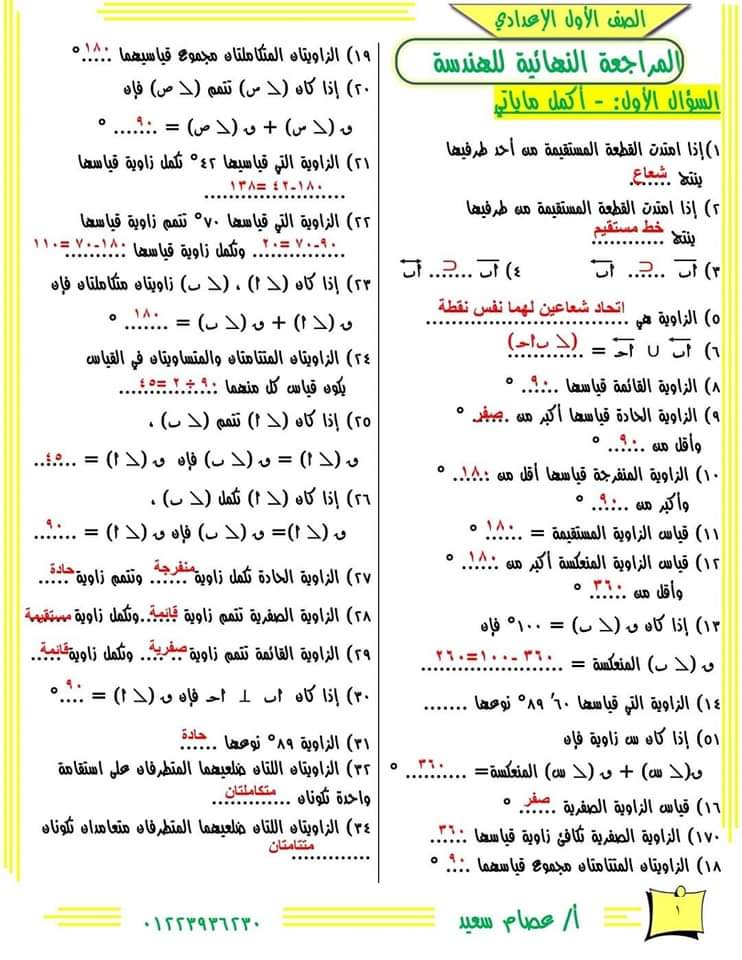 الصف الأول الإعدادي
المراجعة النهائية للهندسة
السؤال الأول: - أكمل ماياتي
١) إذا امتدت القطعة المستقيمة من أحد طرفيها
ينتج شعاع......
٢) إذا امتدت القطعة المستقيمة من طرفيها
ينتج خط مستقيم............
٣) أب ...⊂... أب ٤) أب ...⊂... أب
٥) الزاوية هي اتحاد شعاعين لهما نفس نقطة
٦) أب ∪ أحـ = (ح ب أحـ)............
٨) الزاوية القائمة قياسها ..٩٠.. °
٩) الزاوية الحادة قياسها أكبر من صفر...... °
وأقل من ..٩٠.. °
١٠) الزاوية المنفرجة قياسها أقل من ..١٨٠.. °
وأكبر من ..٩٠.. °
١١) قياس الزاوية المستقيمة = ..١٨٠.. °
١٢) قياس الزاوية المنعكسة أكبر من ..١٨٠.. °
وأقل من ..٣٦٠.. °
١٣) إذا كان ق (ح ب) = ١٠٠° فإن
ق (ح ب) المنعكسة = ٣٦٠-١٠٠=٢٦٠
١٤) الزاوية التي قياسها ٦٠' ٨٩° نوعها .......
٥١) إذا كان س زاوية فإن
ق(ح س) + ق (ح س) المنعكسة= ...٣٦٠... °
١٦) قياس الزاوية الصفرية صفر...... °
١٧٠) الزاوية الصفرية تكافئ زاوية قياسها ..٣٦٠..
١٨) الزاويتان المتتامتان مجموع قياسهما ..٩٠.. °
١٩) الزاويتان المتكاملتان مجموع قياسيهما ..١٨٠.. °
٢٠) إذا كان (ح س) تتمم (ح ص) فإن
ق (ح س) + ق (ح ص) = ..٩٠.. °
٢١) الزاوية التي قياسيها ٤٢° تكمل زاوية قياسها
١٨٠-٤٢ =١٣٨
٢٢) الزاوية التي قياسها ٧٠° تتمم زاوية قياسها
٩٠-٧٠ =٢٠ وتكمل زاوية قياسها ١٨٠-٧٠ =١١٠
٢٣) إذا كان (ح أ) ، (ح ب) زاويتان متكاملتان فإن
ق (ح أ) + ق (ح ب) = ..١٨٠.. °
٢٤) الزاويتان المتتامتان والمتساويتان في القياس
يكون قياس كل منهما ٩٠ ÷ ٢ =٤٥
٢٥) إذا كان (ح أ) تتمم (ح ب) ،
ق (ح أ) = ق (ح ب) فإن ق (ح أ) = ..٤٥..
٢٦) إذا كان (ح أ) تكمل (ح ب) ،
ق (ح أ)= ق (ح ب) فإن ق (ح أ) = ..٩٠..
٢٧) الزاوية الحادة تكمل زاوية منفرجة...... وتتمم زاوية حادة.....
٢٨) الزاوية الصفرية تتمم زاوية قائمة....وتكمل زاوية مستقيمة
٢٩) الزاوية القائمة تتمم زاوية صفرية...... وتكمل زاوية قائمة.....
٣٠) إذا كان أب ⊥ أحـ فإن ق (ح أ) = ..٩٠.. °
٣١) الزاوية ٨٩° نوعها حادة......
٣٢) الزاويتان اللتان ضلعيهما المتطرفان على استقامة
واحدة تكونان متكاملتان............
٣٤) الزاويتان اللتان ضلعيهما المتطرفان متعامدان تكونان
متتامتان............
١
أ/ عصام سعيد
٠١٢٢٣٩٣٦٢٣٠